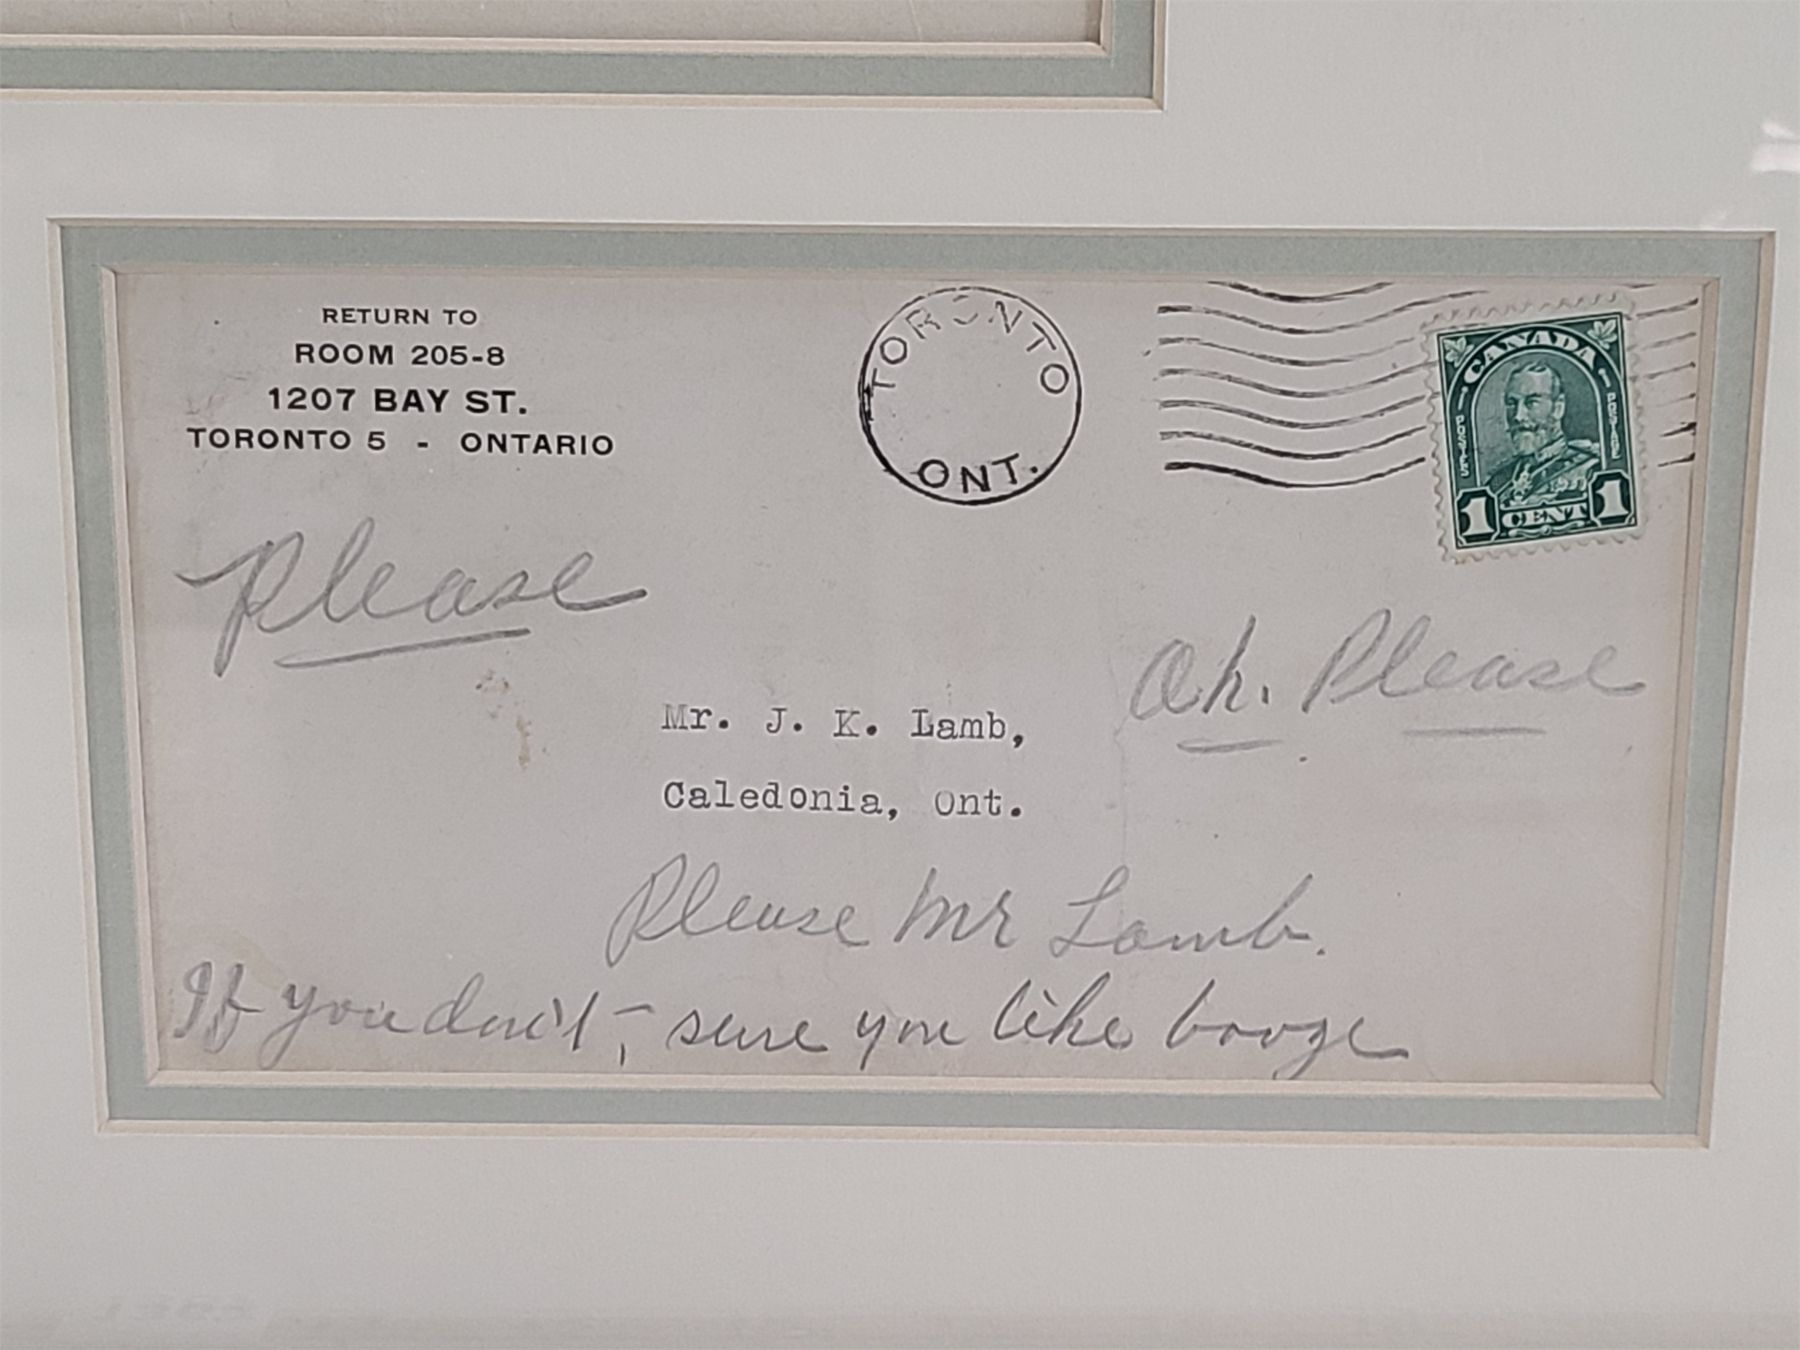 RETURN TO
ROOM 205-8
1207 BAY ST.
TORONTO 5 - ONTARIO
TORONTO
ONT.
CANADA
POSTES
POSTAGE
1 CENT 1
Please
Oh. Please
Mr. J. K. Lamb,
Caledonia, Ont.
Please Mr Lamb.
If you don't, - sure you like booze